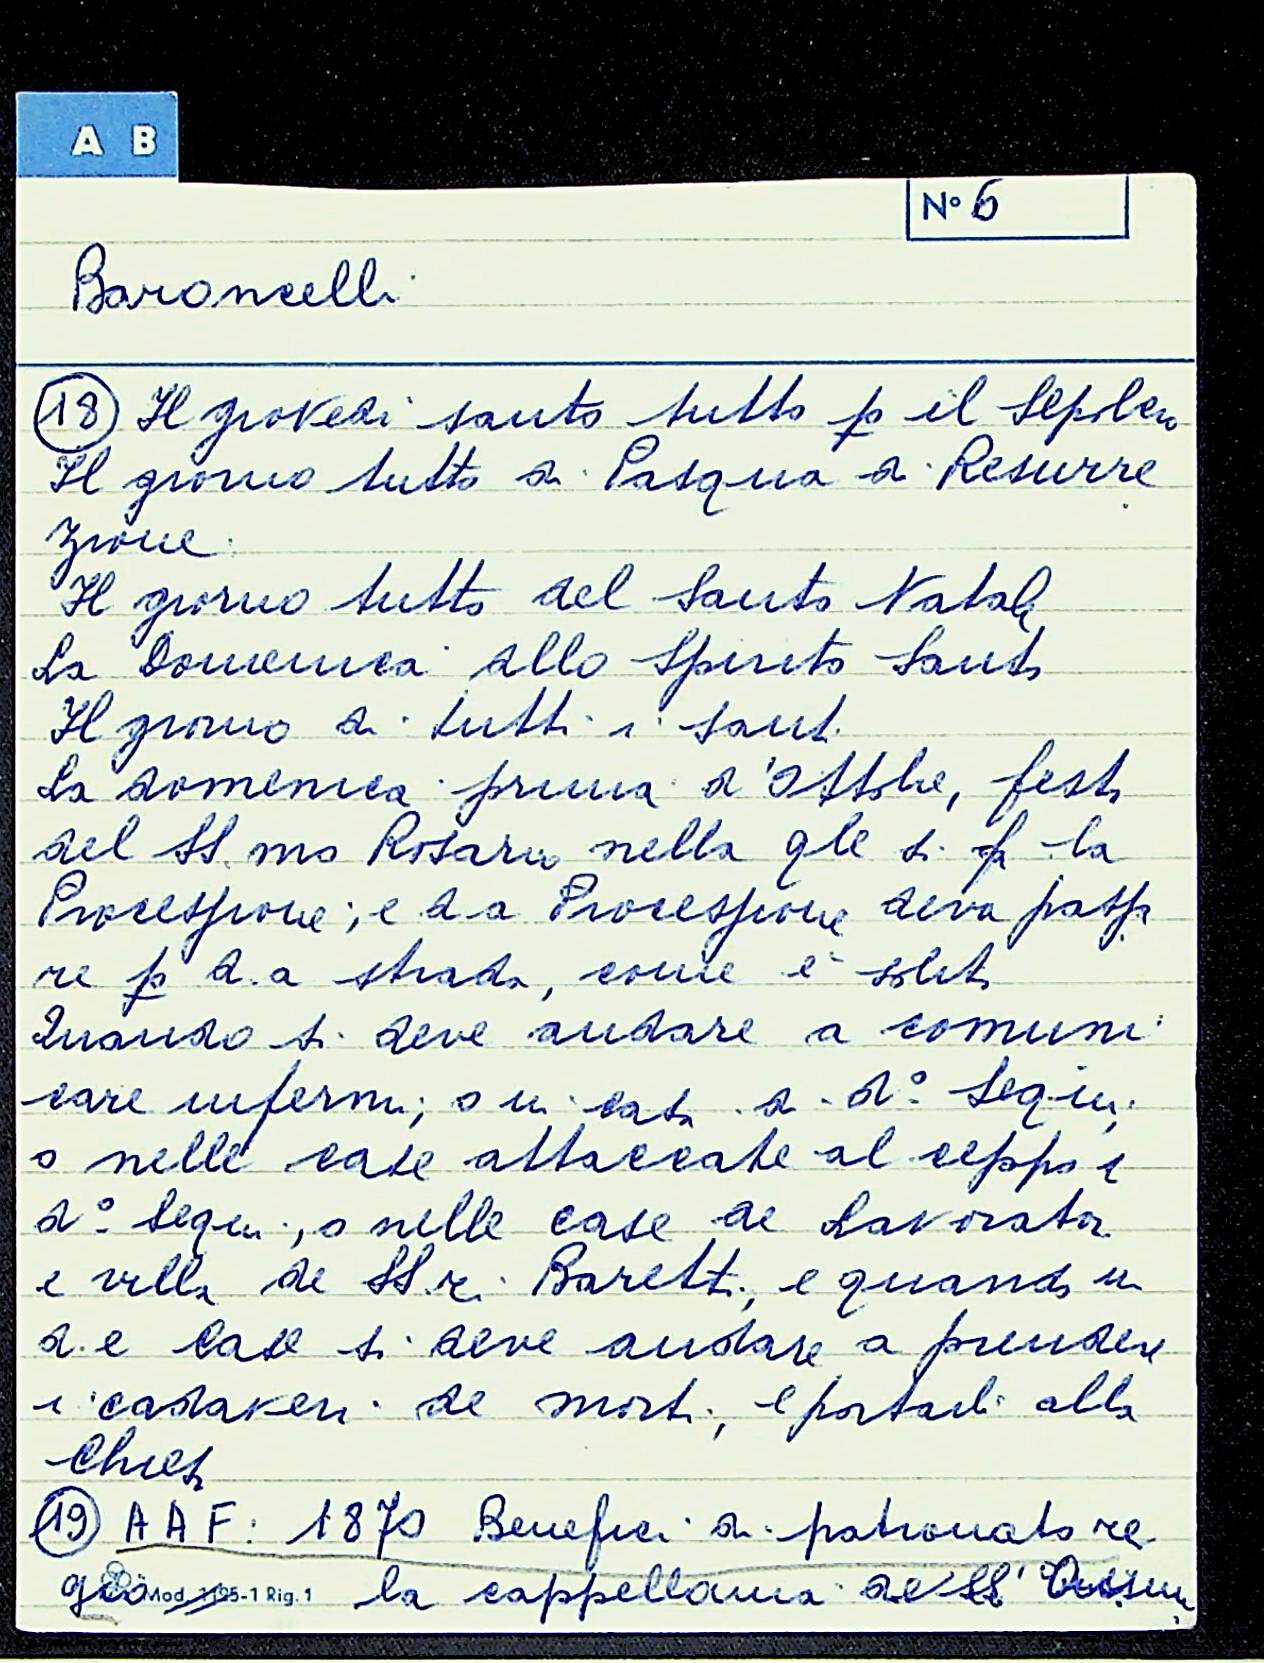 A B
N° 6
Baroncelli
18 Il giovedi santo tutto p il Sepolcro
Il giorno tutto di Pasqua di Resurre
zione
Il giorno tutto del Santo Natale
La Domenica dello Spirito Santo
Il giorno di tutti i santi
La domenica prima d'Ottobre, festa
del SS.mo Rosario nella qle si fa la
Processione; e d.a Processione deva passa
re p d.a strada, come è solito
Quando si deve andare a comuni
care infermi; o in casa di d.° Segni,
o nelle case attaccate al ceppo
d.° Segni, o nelle case de Lavoratori
e villa de SS.ri Baretti, e quando in
d.e Case si deve andare a prendere
i cadaveri de morti, e portarli alla
Chiesa
19 AAF: 1870 Benefici di patronato re
gio Mod. 1195-1 Rig. 1 la cappellania de SS'